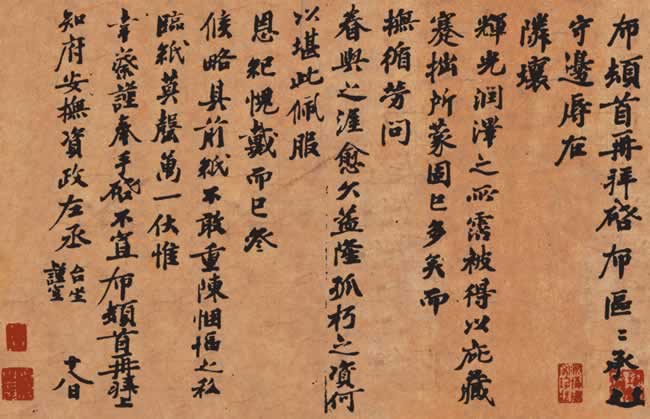 布頓首再拜啓布區〻承乏
守邊辱在
隣壤
輝光潤澤之所霑被得以庇藏
蹇拙所蒙固已多矣而
撫循勞問
眷與之渥愈久益隆孤朽之資何
以堪此佩服
恩紀愧戴而已參
候略具前紙不敢重陳悃愊之私
臨紙莫罄萬一伏惟
幸察謹奉手啓不宣布頓首再拜上
知府安撫資政左丞
台坐
謹空
八日